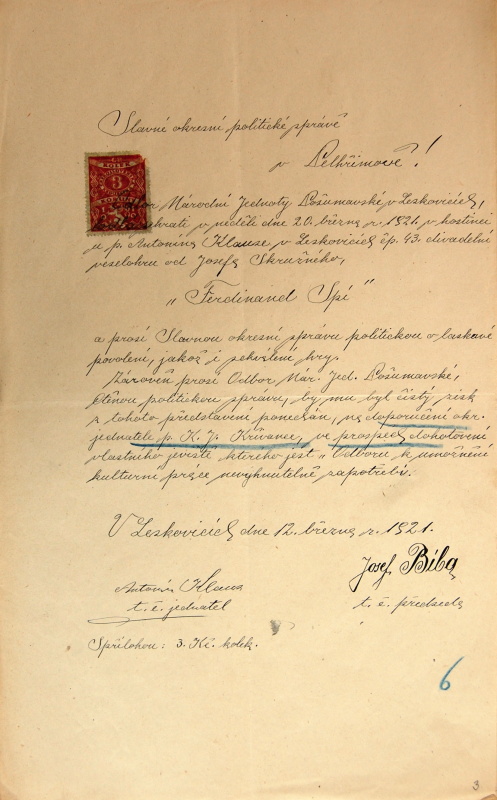 Slavné okresní politické správě
v Pelhřimově!
KOLEK
3
Odbor Národní Jednoty Pošumavské v Leskovicích,
sehrati v neděli dne 20. března r. 1921. v hostinci
u p. Antonína Klause v Leskovicích čp. 43. divadelní
veselohru od Josefa Skružného,
„Ferdinand Spí"
a prosí Slavnou okresní správu politickou o laskavé
povolení, jakož i schválení hry.
Zároveň prosí Odbor Nár. Jed. Pošumavské,
ctěnou politickou správu, by mu byl čistý zisk
z tohoto představení ponechán, na doporučení okr.
jednatele p. K. j. Křivance, ve prospěch dohotovení
vlastního jeviště kterého jest „Odboru k umožnění
kulturní práce nevyhnutelně zapotřebí.
V Leskovicích dne 12. března r. 1921.
Josef Bíba
t. č. předseda
Antonín Klaus
t. č. jednatel
S přílohou: 3. Kč. kolek.
6
3